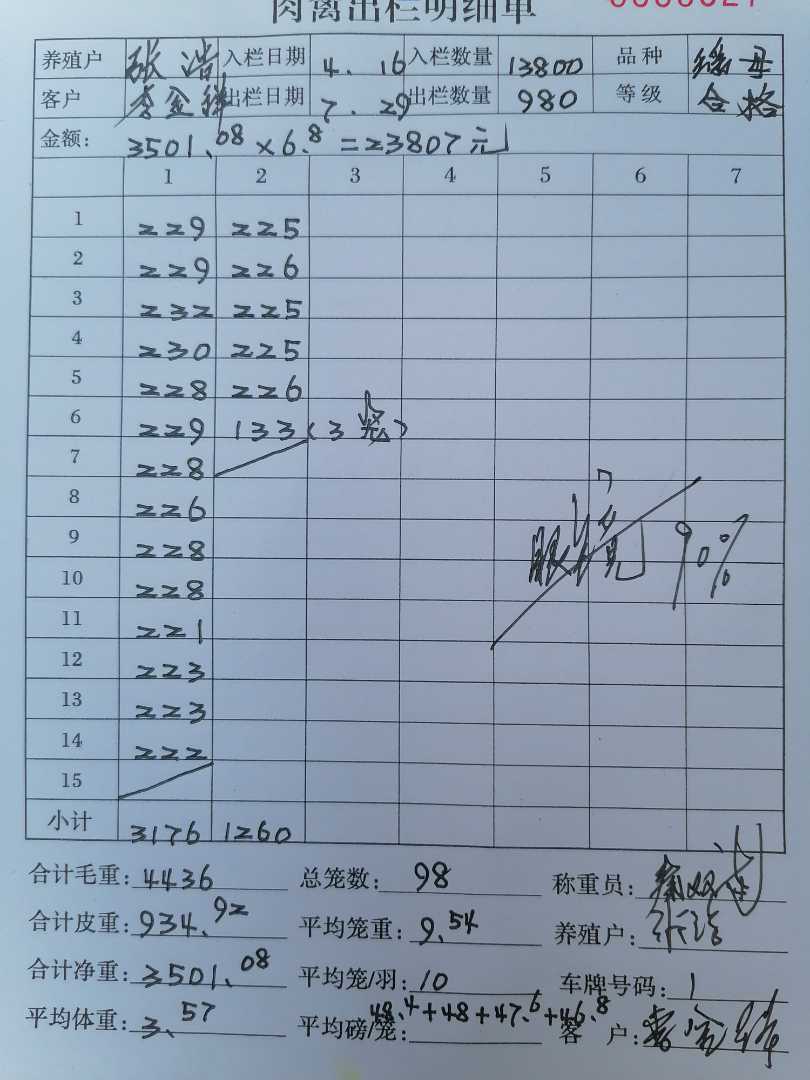 肉禽出栏明细单 0000027
养殖户 张浩 入栏日期 4.16 入栏数量 13800 品种 瑶母
客户 李金锋 出栏日期 7.29 出栏数量 980 等级 合格
金额: 3501.08×6.8=23807元
1 2 3 4 5 6 7
1 229 225
2 229 226
3 232 225
4 230 225
5 228 226
6 229 133(3笼)
7 228
8 226
9 228
10 228
11 221
12 223
13 223
14 222
15
90%
小计 3176 1260
合计毛重: 4436 总笼数: 98 称重员:
合计皮重: 934.92 平均笼重: 9.54 养殖户: 张浩
合计净重: 3501.08 平均笼/羽: 10 车牌号码: 1
平均体重: 3.57 平均磅/笼: 48.4+48+47.6+46.8 客户: 李金锋